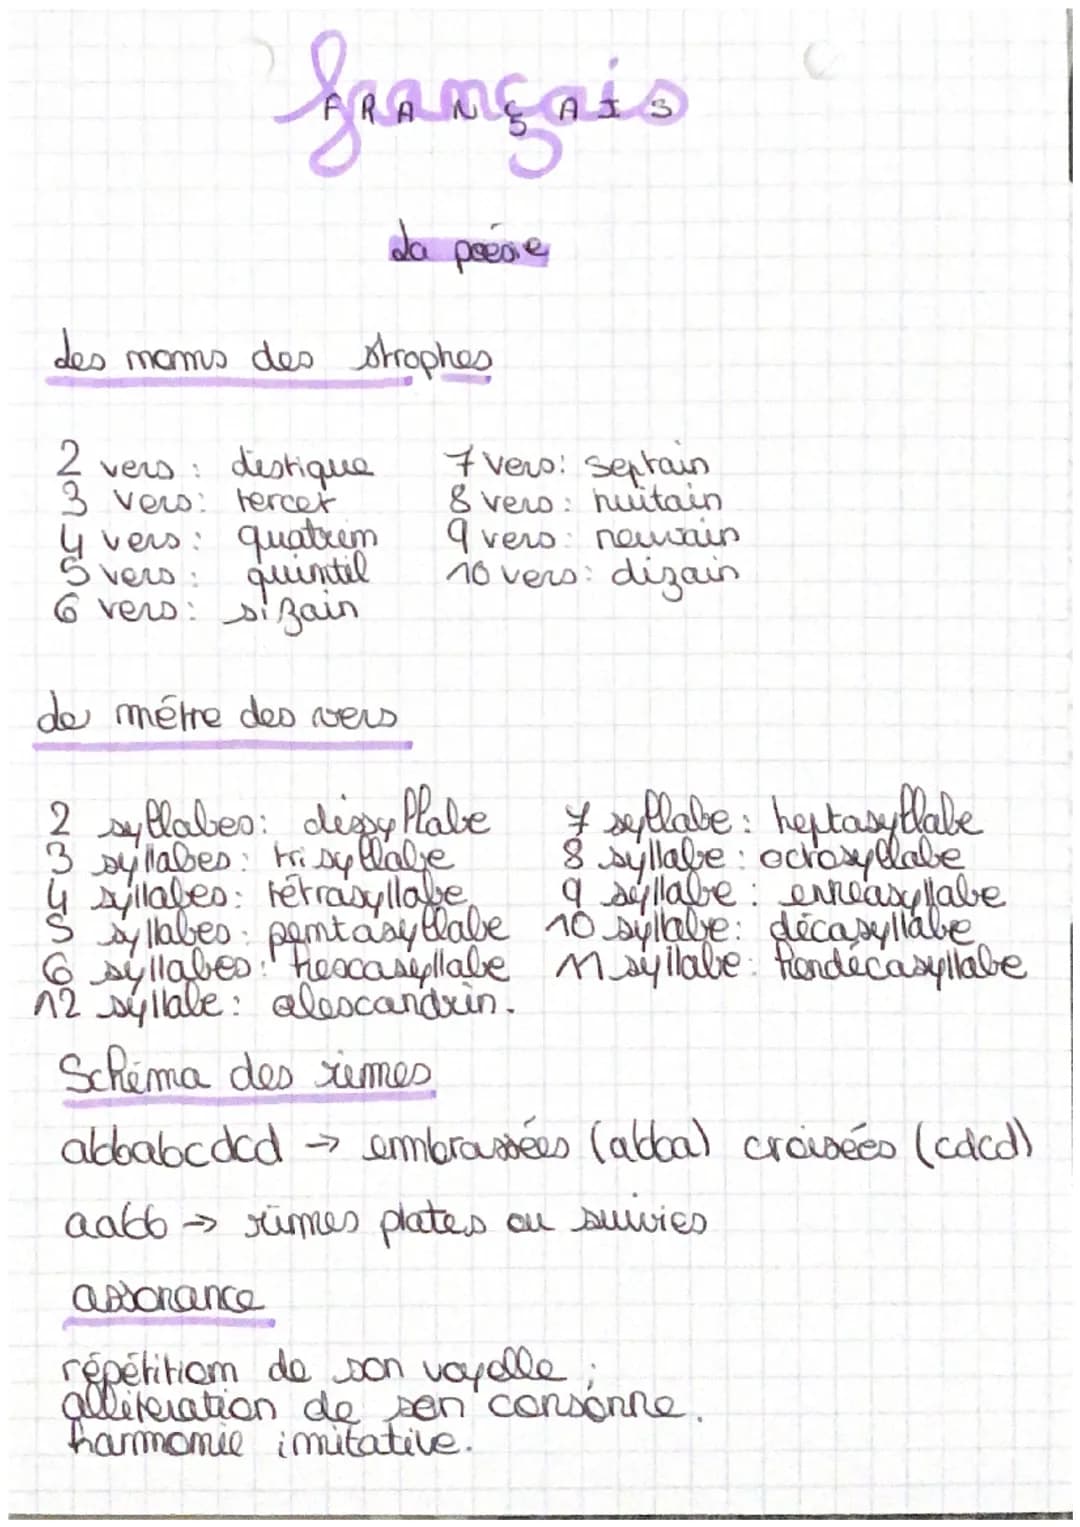 français
FRANÇAIS
La poésie
Les noms des strophes
2 vers : distique 7 vers : septain
3 vers : tercet 8 vers : huitain
4 vers : quatrim 9 vers : neuvain
5 vers : quintil 10 vers : dizain
6 vers : sizain
Le métre des vers
2 syllabes : dissyllabe 7 syllabe : heptasyllabe
3 syllabes : trisyllabe 8 syllabe : octosyllabe
4 syllabes : tétrasyllabe 9 syllabe : enneasyllabe
5 syllabes : pentasyllabe 10 syllabe : décasyllabe
6 syllabes : hexasyllabe 11 syllabe : hendécasyllabe
12 syllabe : alexcandrin.
Schéma des rimes
abbabcdcd → embrassées (abba) croisées (cdcd)
aabb → rimes plates ou suivies
assonance
répétition de son voyelle ;
allitération de son consonne.
harmonie imitative.